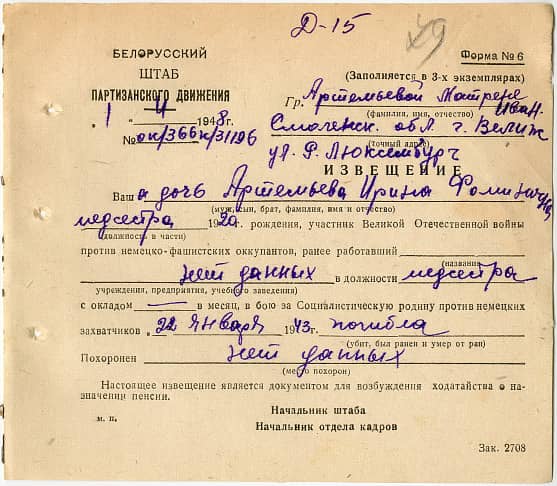 Д-15
БЕЛОРУССКИЙ
ШТАБ
ПАРТИЗАНСКОГО ДВИЖЕНИЯ
„1“ 4 1948г.
№ ок/366к/31196
Форма № 6
(Заполняется в 3-х экземплярах)
Гр. Артемьевой Матрене Иван.
(фамилия, имя, отчество)
Смоленск. обл. г. Велиж
(точный адрес)
ул. Р. Люксембург
ИЗВЕЩЕНИЕ
Ваша дочь Артемьева Ирина Фоминична
(муж, сын, брат, фамилия, имя и отчество)
медсестра 1920 г. рождения, участник Великой Отечественной войны
(должность в части)
против немецко-фашистских оккупантов, ранее работавший
(название
нет данных в должности медсестра
учреждения, предприятия, учебного заведения)
с окладом — в месяц, в бою за Социалистическую родину против немецких
захватчиков 22 января 1943г. погибла
(убит, был ранен и умер от ран)
Похоронен нет данных
(место похорон)
Настоящее извещение является документом для возбуждения ходатайства о на-
значении пенсии.
Начальник штаба
м. п.
Начальник отдела кадров
Зак. 2708